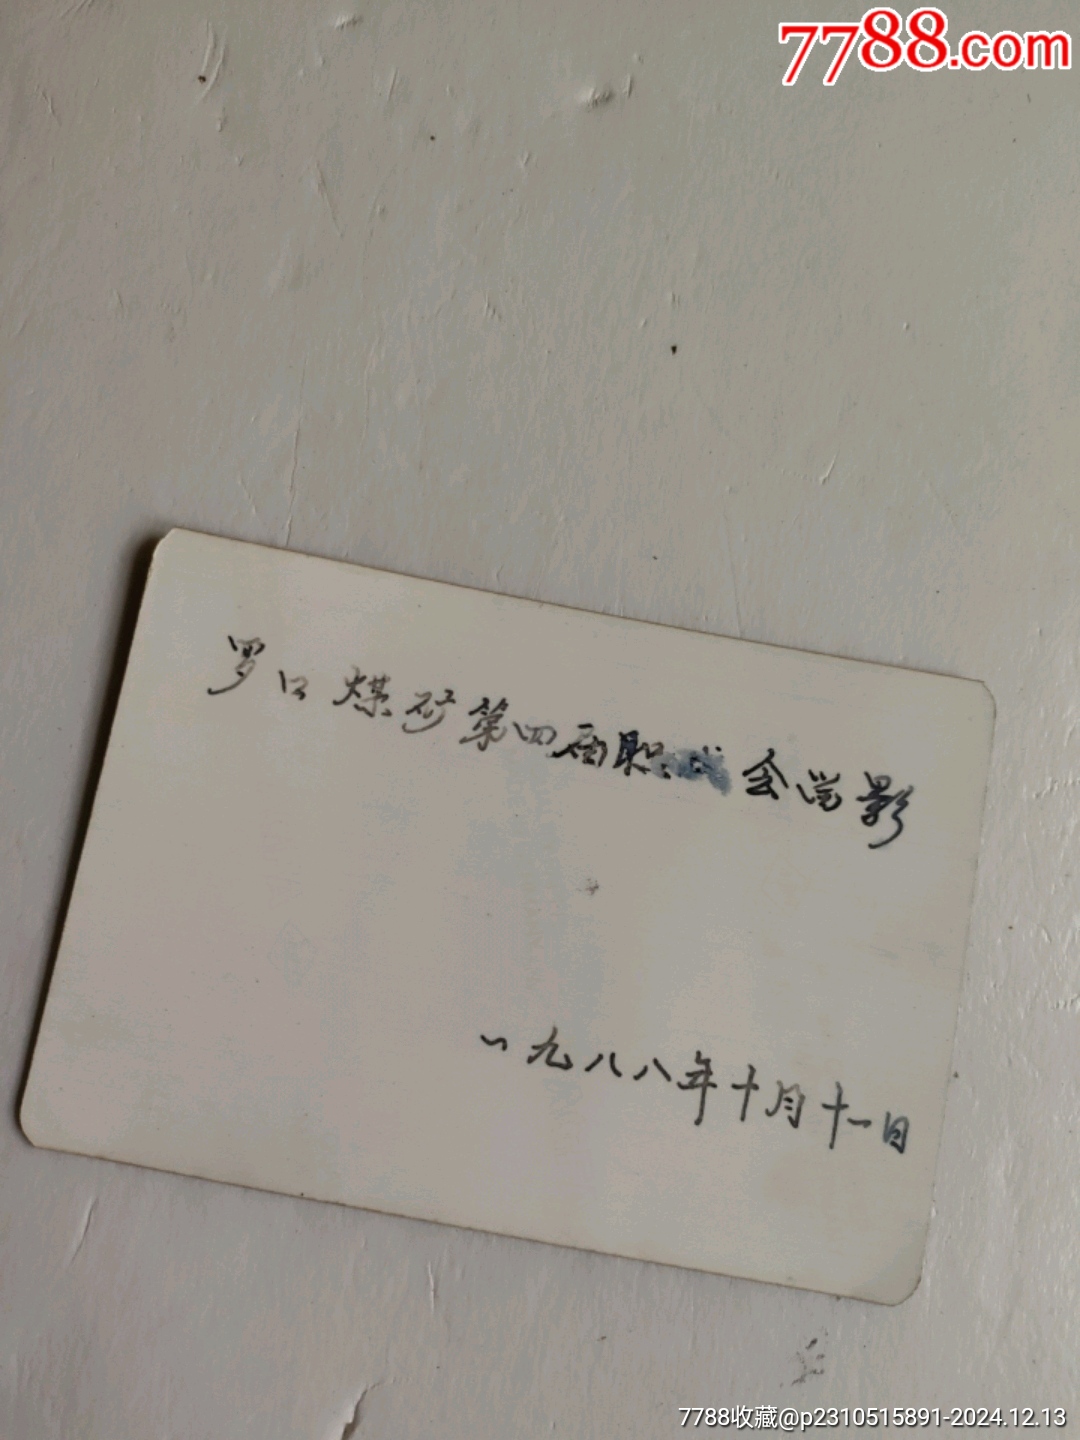 7788.com
罗口煤矿第四届职代会留影
一九八八年十月十一日
7788收藏@p2310515891-2024.12.13